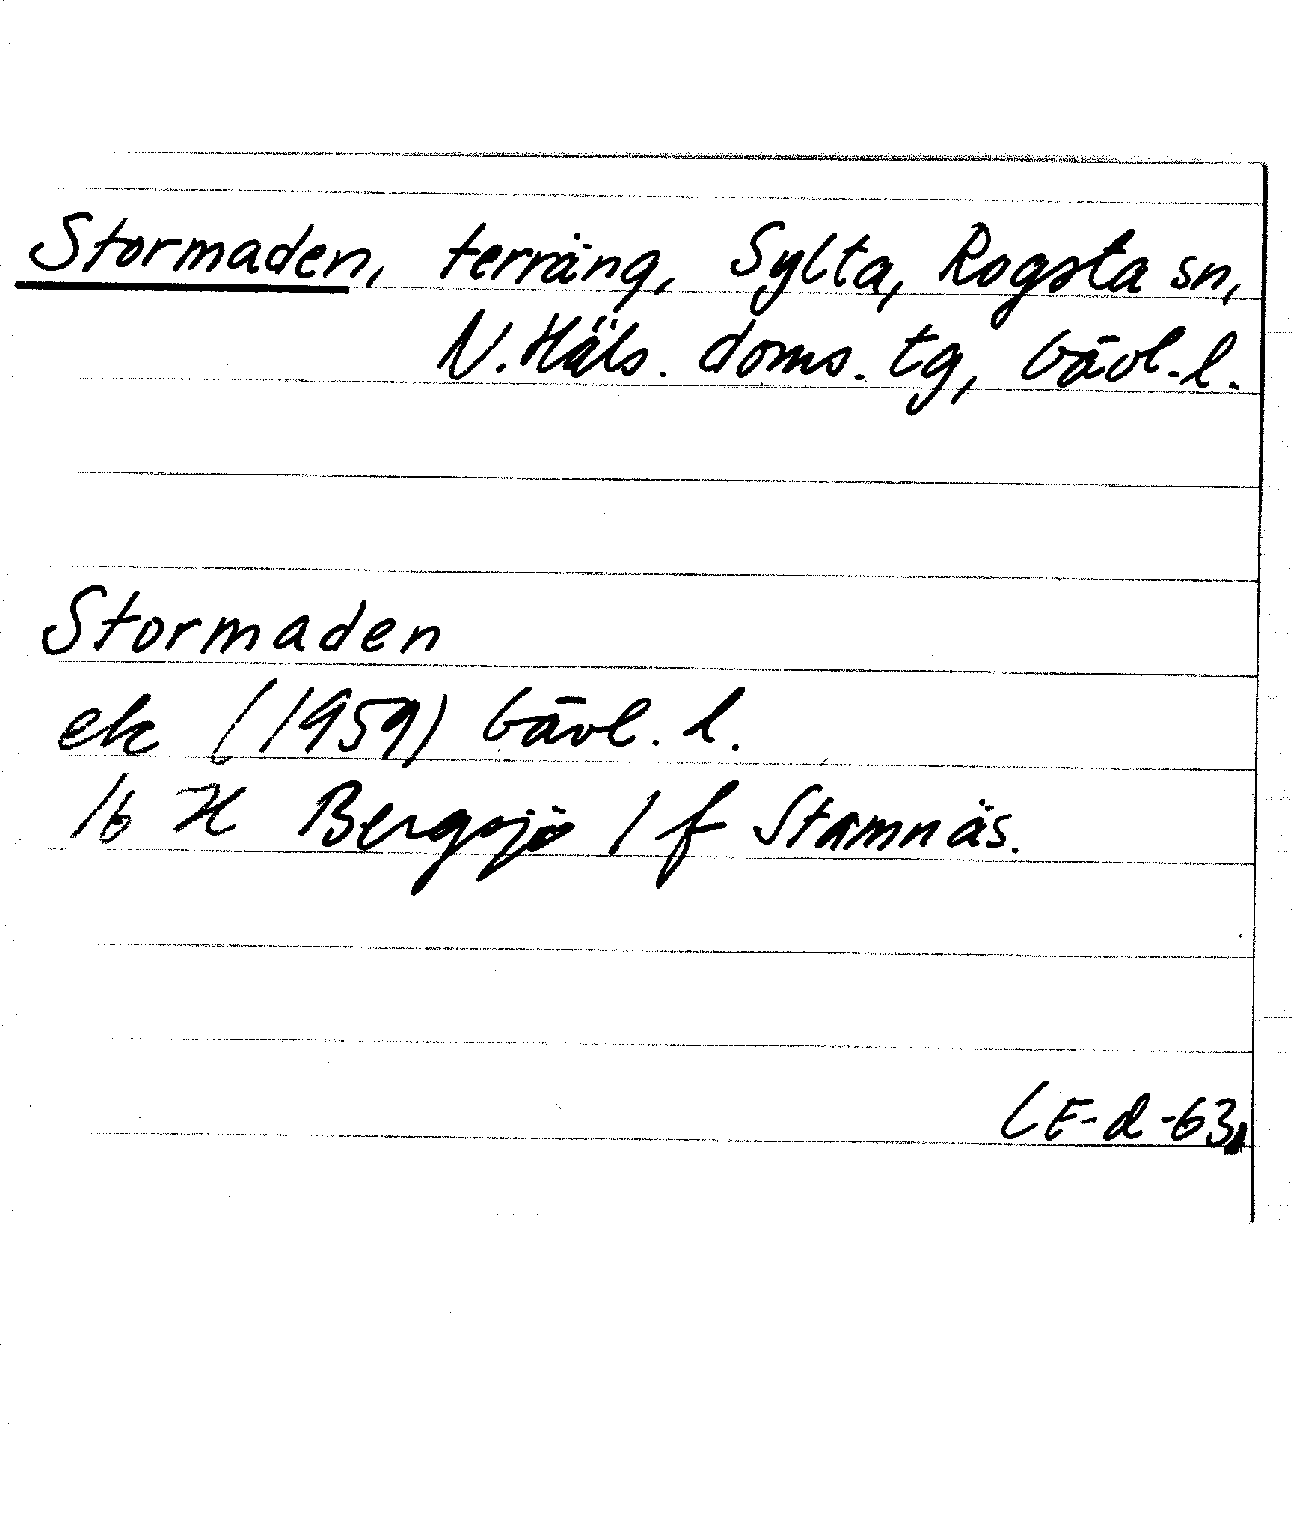 Stormaden, terräng, Sylta, Rogsta sn,
N. Häls. doms. tg, Gävl. l.
Stormaden
ek (1959) Gävl. l.
16 H Bergsjö 1 f Stamnäs.
CE-d -63